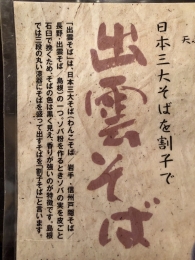 天
日本三大そばを割子で
出雲そば
「出雲そば」は、日本三大そば(わんこそば／岩手・信州戸隠そば／
長野・出雲そば／島根)の一つ。ソバ粉を作るとき、ソバの実を皮ごと
石臼で挽くため、そばの色は黒く見え、香りが強いのが特徴です。島根
では三段の丸い漆器にそばを盛って出すそばを「割子そば」と言います。